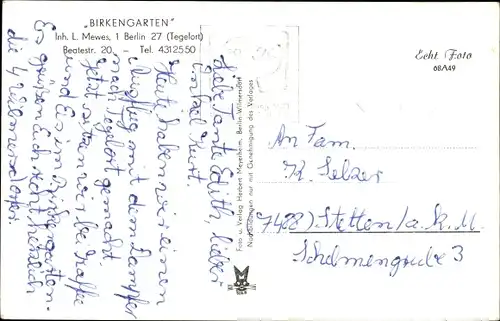 „BIRKENGARTEN"
Inh. L. Mewes, 1 Berlin 27 (Tegelort)
Beatestr. 20 – Tel. 4312550
Echt Foto
68A49
Liebe Tante Edith, lieber
Onkel Kurt.
Heute haben wir einen
Ausflug mit dem Dampfer
nach Tegelort gemacht.
Jetzt sitzen wir bei Kaffee
und Eis im Birkengarten.
Es grüßen Euch recht herzlich
die 4 Wilmersdorfer.
Foto u. Verlag Herbert Meyerheim, Berlin-Wilmersdorf
Nachbildungen nur mit Genehmigung des Verlages
An Fam.
K. Selzer
7488) Stetten/a. k. M.
Schelmengrube 3